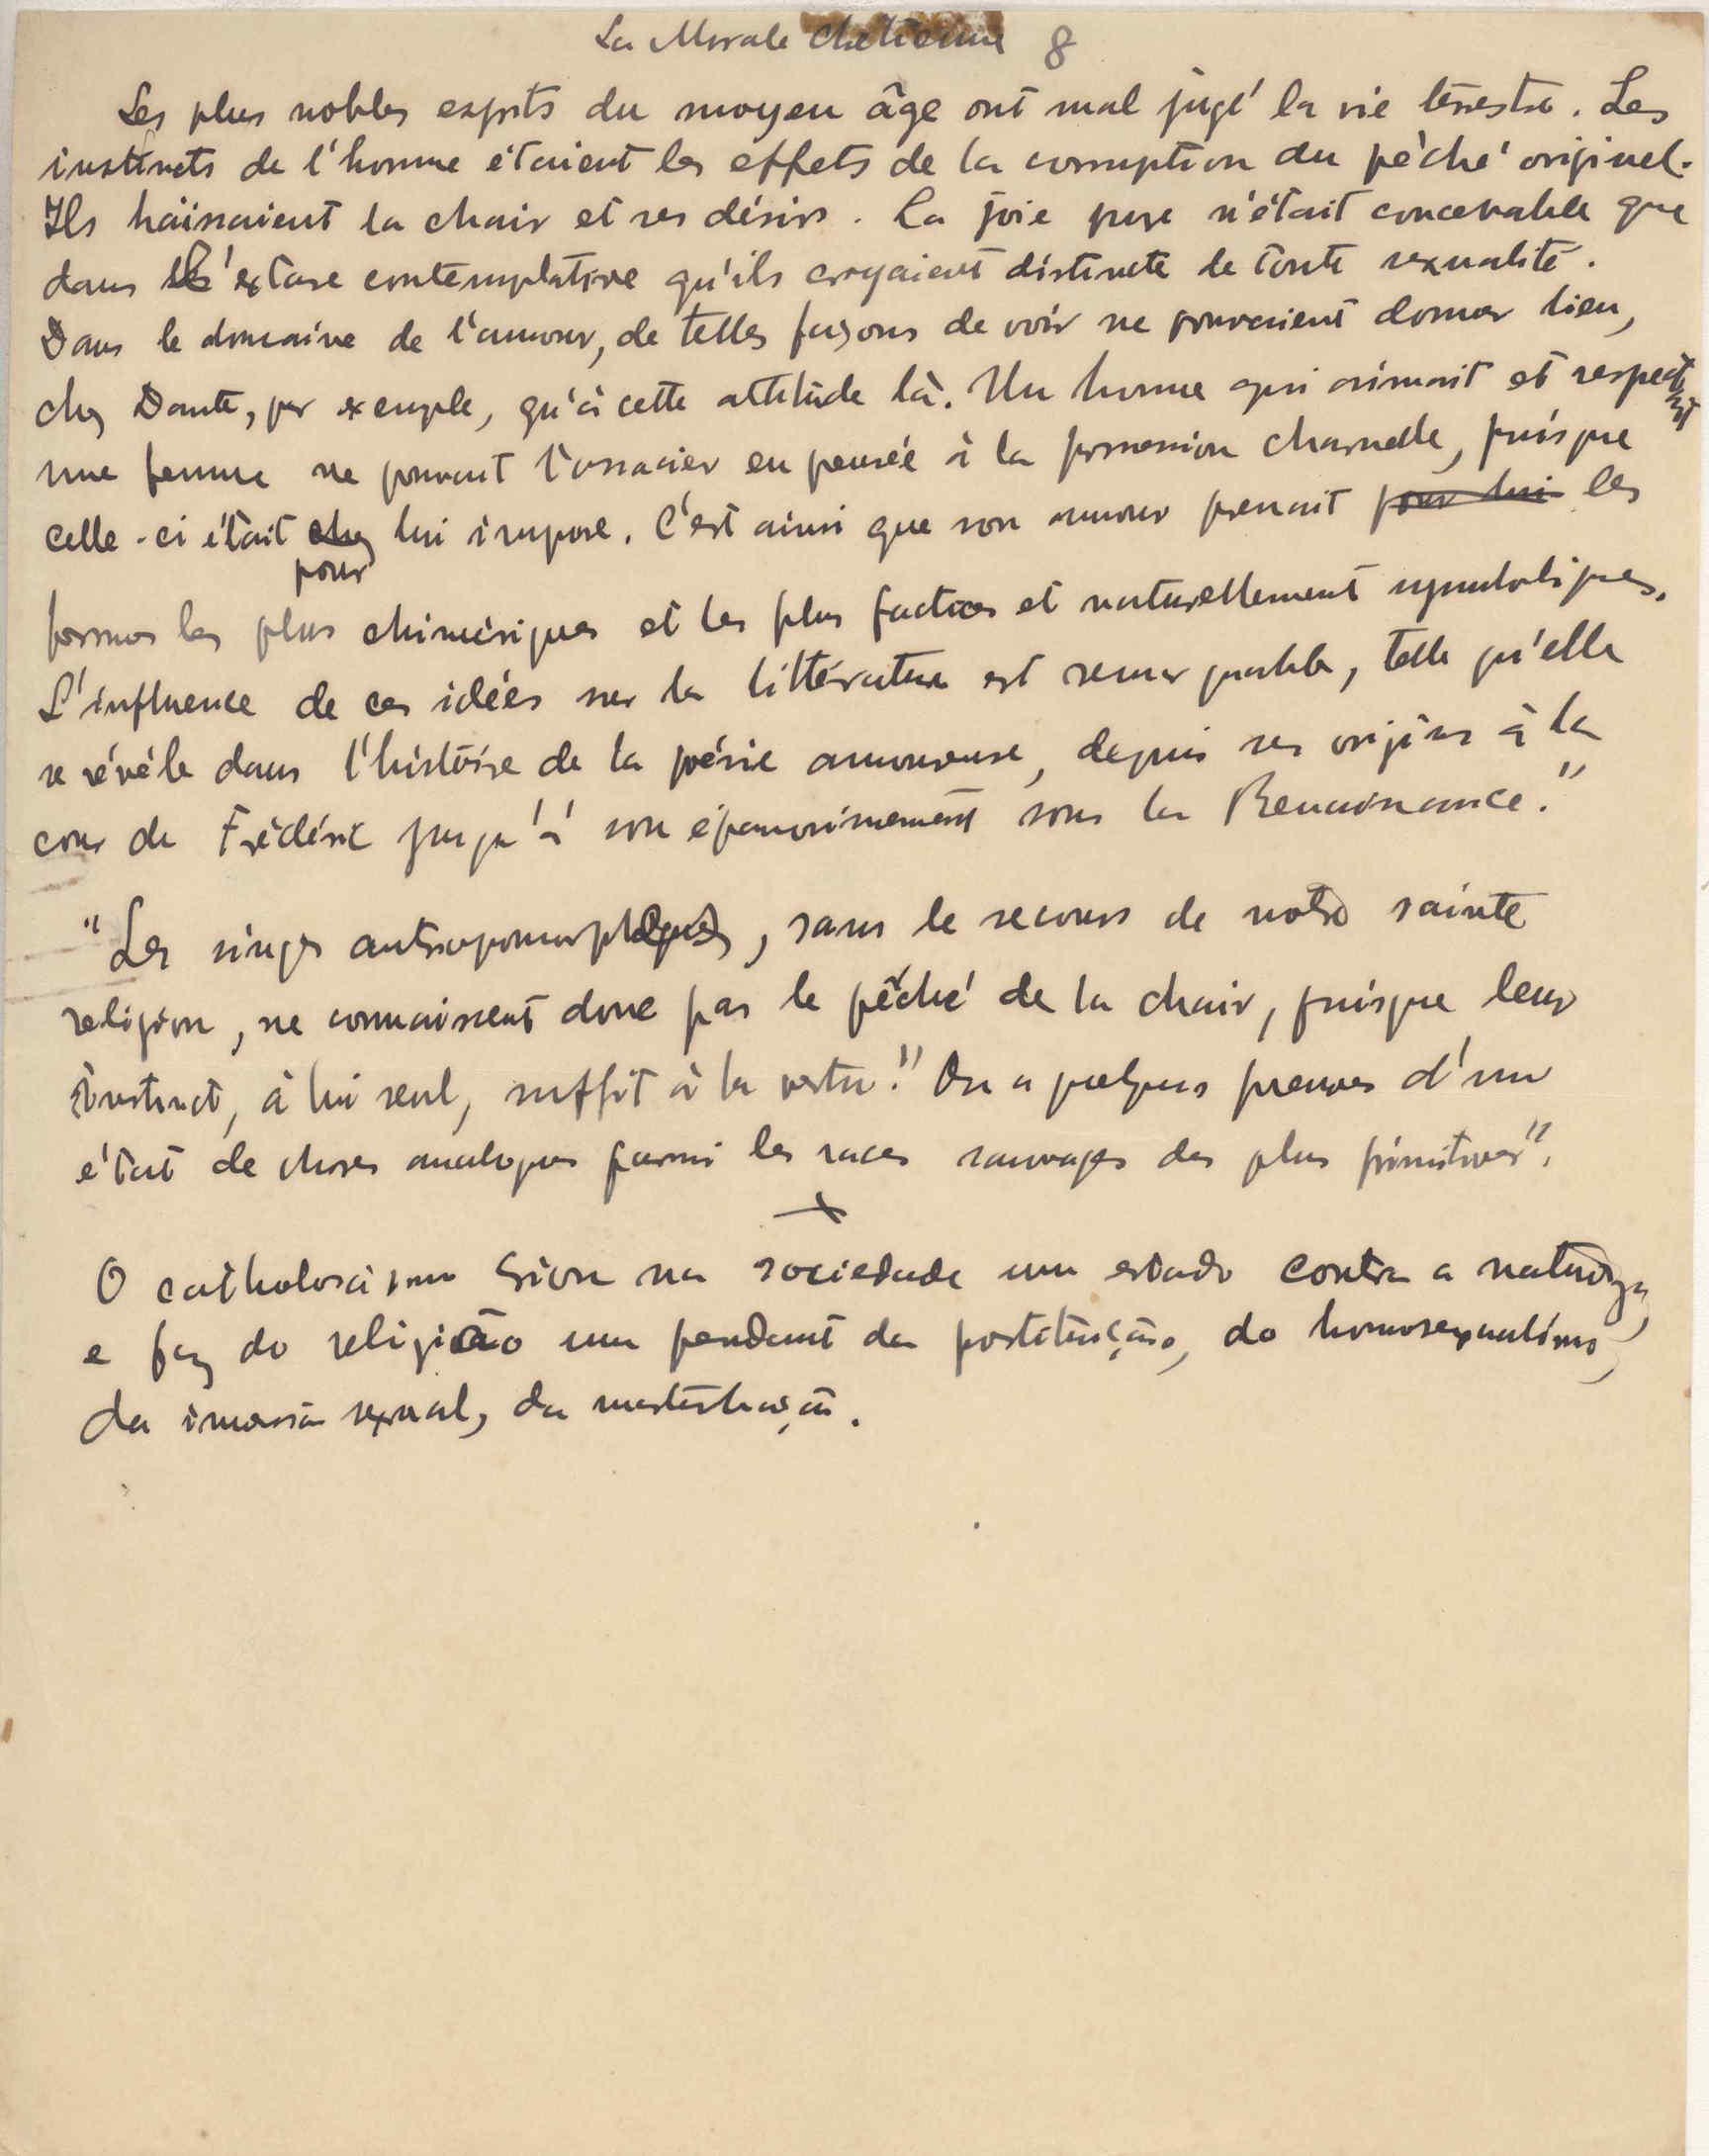 La Morale Chetienne 8
Les plus nobles esprits du moyen âge ont mal jugé la vie terrestre. Les
instincts de l'homme étaient les effets de la corruption du péché originel.
Ils haïssaient la chair et ses désirs. La joie pure n'était concevable que
dans l'extase contemplative qu'ils croyaient distincte de toute sexualité.
Dans le domaine de l'amour, de telles façons de voir ne pouvaient donner lieu,
chez Dante, par exemple, qu'à cette attitude là. Un homme qui aimait et respectait
une femme ne pouvait l'associer en pensée à la possession charnelle, puisque
celle-ci était chez lui impure. C'est ainsi que son amour prenait pour lui les
pour
formes les plus chimériques et les plus factices et naturellement symboliques.
L'influence de ces idées sur la littérature est remarquable, telle qu'elle
se révèle dans l'histoire de la poésie amoureuse, depuis ses origines à la
cour de Frédéric jusqu'à son épanouissement sous la Renaissance."
"Les singes , sans le secours de notre sainte
religion, ne connaissent donc pas le péché de la chair, puisque leur
instinct, à lui seul, suffit à la vertu." On a quelques preuves d'un
état de choses analogues parmi les races sauvages des plus primitives".
O catholocismo criou na sociedade um estado contra a natureza,
e fez do religião um pendant da postituição, do homosexualismo,
da sexual, da masturbação.